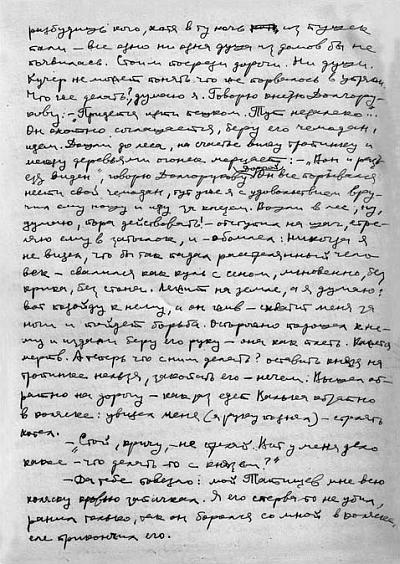 разбудишь кого, хотя в ту ночь из пушек
пали — все одно ни одна душа из домов бы не
появилась. Стоим посреди дороги. Ни души.
Кучер не может понять что же порвалось в упряжи.
Что же делать? думаю я. Говорю князю Долгору-
кову: — Придется идти пешком. Тут недалеко...
Он охотно соглашается, беру его чемодан,
идем. Дошли до леса, на счастье вижу тропинку и
между деревьями огонек мерцает: — "Вон и разъ-
езд виден" говорю Долгорукову. Он все порывался
нести свой чемодан, тут уже я с удовольствием вру-
чил ему ношу и иду за князем. Вошли в лес, ну,
думаю, пора действовать! — отступил на шаг, стре-
ляю ему в затылок, и — обомлел: никогда я
не видел, что бы так падал расстрелянный чело-
век — свалился как куль с сеном, мгновенно, без
крика, без стона. Лежит на земле, а я думаю:
вот подойду к нему, а он жив — схватит меня за
ноги и пойдет борьба. Осторожно подошел к не-
му и издали беру его руку — она как плеть. Кажется
мертв. А теперь что с ним делать? оставить князя на
тропинке нельзя, закопать его — нечем. Вышел об-
ратно на дорогу — как раз едет обратно
в коляске: увидел меня (я руку поднял) — стрелять
хотел.
— "Стой, кричу, — не стреляй. Вот у меня дело
какое — что делать-то с князем?"
— Да тебе повезло: мой Татищев мне всю
коляску кровью запачкал. Я его стерва-то не убил,
ранил только, так он боролся со мной в коляске,
еле прикончил его.